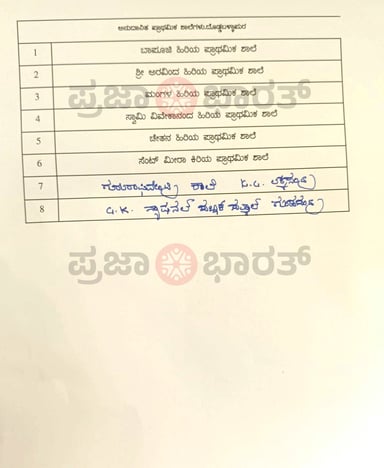 ಅನುದಾನಿತ ಪ್ರಾಥಮಿಕ ಶಾಲೆಗಳು,ದೊಡ್ಡಬಳ್ಳಾಪುರ
1 ಬಾಪೂಜಿ ಹಿರಿಯ ಪ್ರಾಥಮಿಕ ಶಾಲೆ
2 ಶ್ರೀ ಅರವಿಂದ ಹಿರಿಯ ಪ್ರಾಥಮಿಕ ಶಾಲೆ
3 ಮಂಗಳ ಹಿರಿಯ ಪ್ರಾಥಮಿಕ ಶಾಲೆ
ಪ್ರಜಾ ಭಾರತ್
4 ಸ್ವಾಮಿ ವಿವೇಕಾನಂದ ಹಿರಿಯ ಪ್ರಾಥಮಿಕ ಶಾಲೆ
5 ಚೇತನ ಹಿರಿಯ ಪ್ರಾಥಮಿಕ ಶಾಲೆ
6 ಸೆಂಟ್ ಮೀರಾ ಕಿರಿಯ ಪ್ರಾಥಮಿಕ ಶಾಲೆ
7 ಶಾಲೆ
8 G.K.
ಪ್ರಜಾ ಭಾರತ್